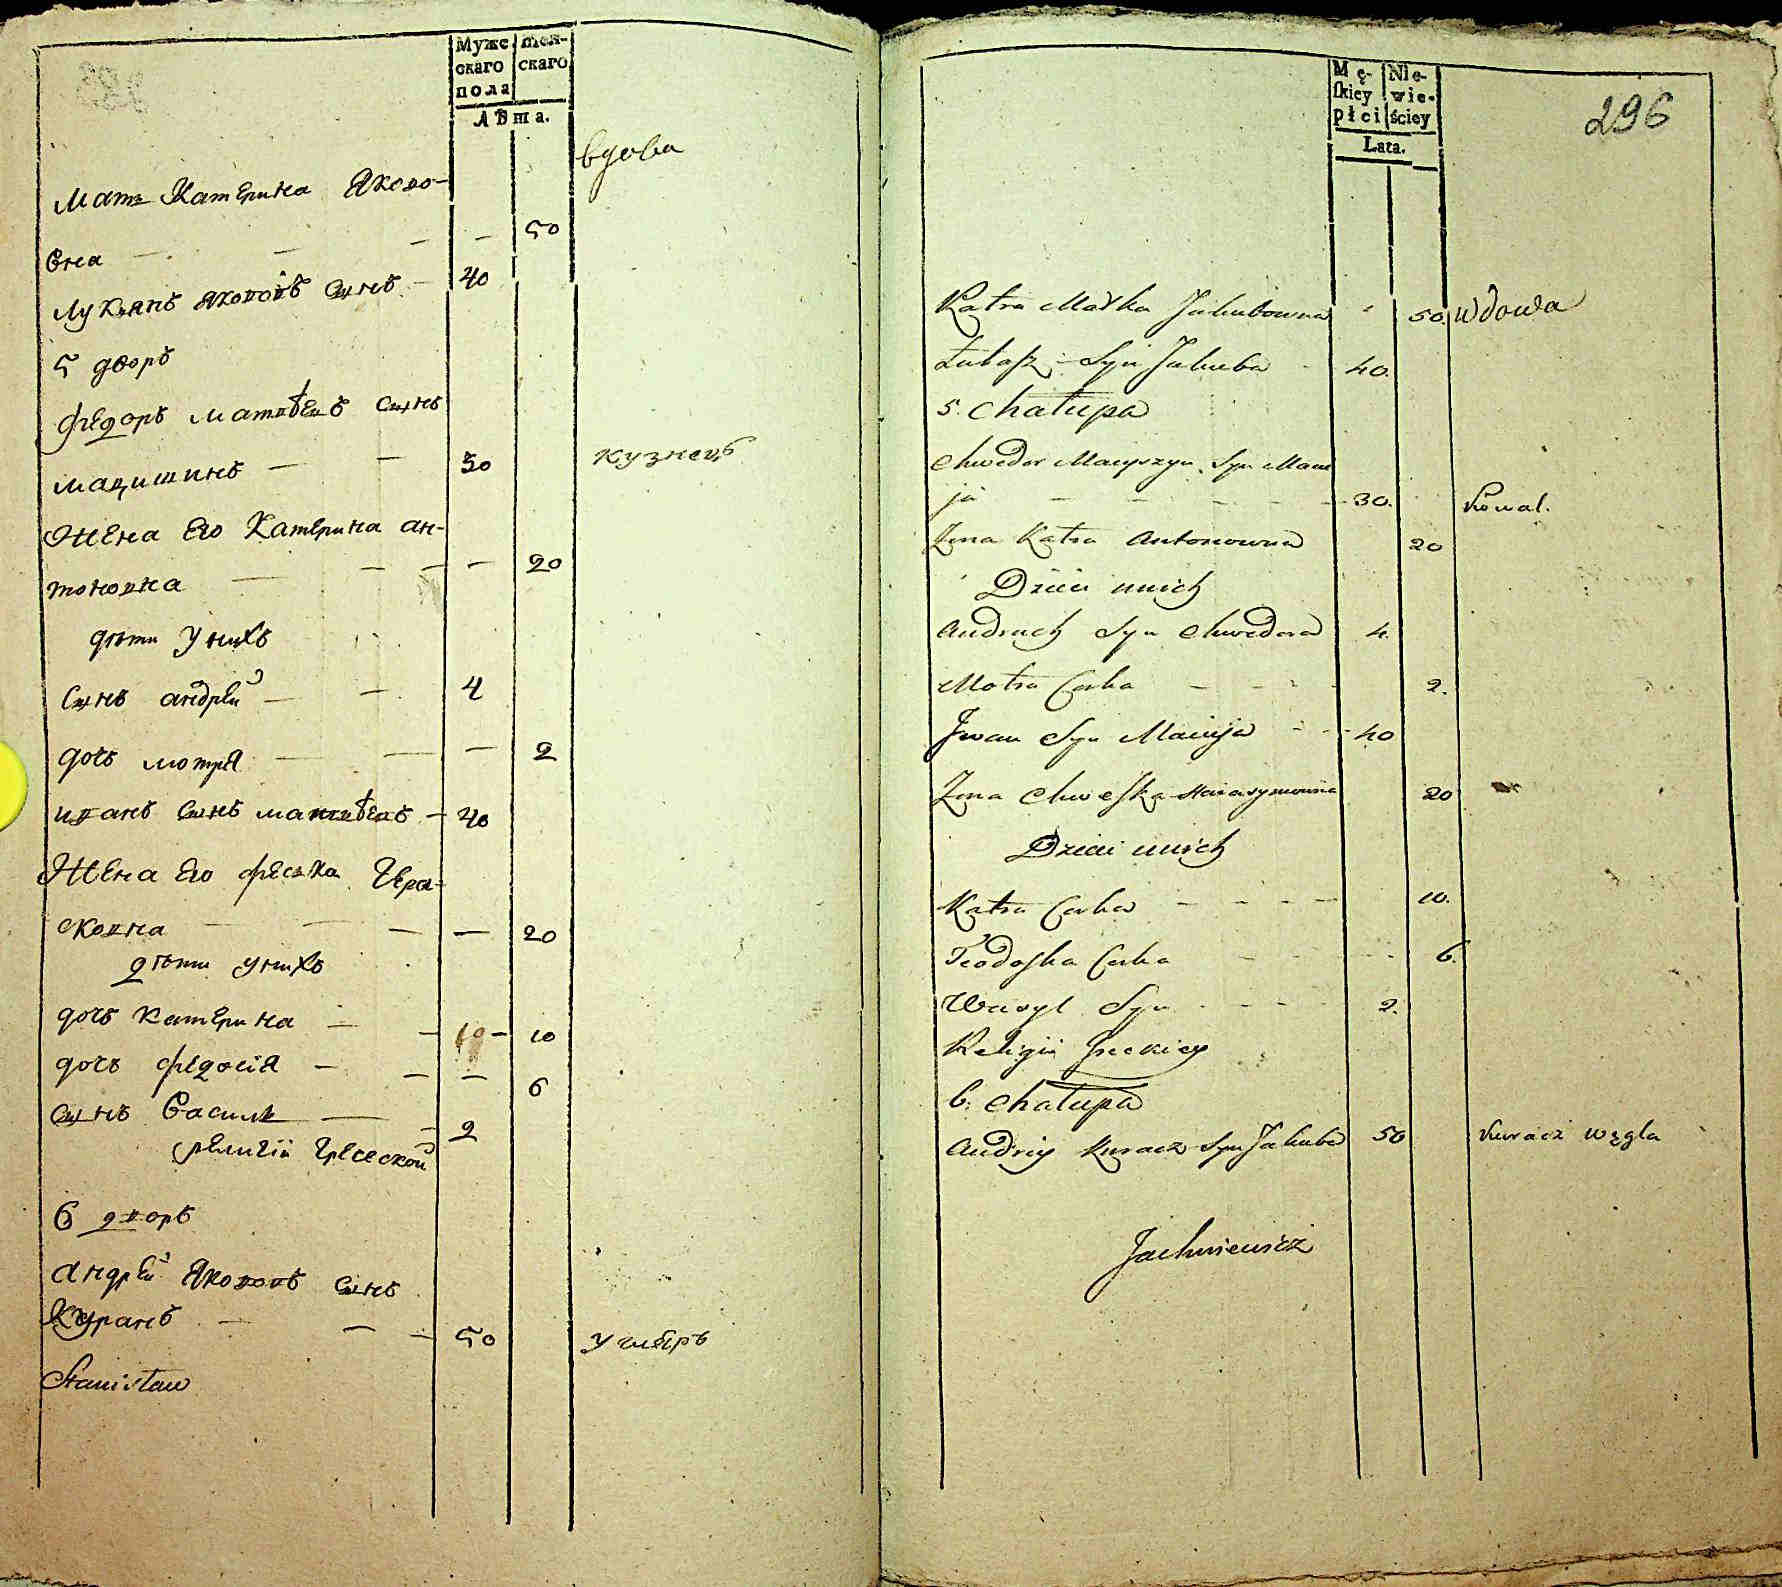 Муже
скаго
пола
жен-
скаго
Лѣта.
вдова
Мать Катерина Яково-
вна — — — — 50
Лукянъ Якововъ сынъ — 40
5 дворъ
Федоръ Матвѣевъ сынъ
Мацишинъ — — 30 кузнецъ
Жена Его Катерина Ан-
тоновна — — — — 20
дѣти у нихъ
Сынъ Андрей — — 4
дочь Мотря — — — 2
Иванъ Сынъ Матвѣевъ — 40
Жена Его Феска Гера-
сковна — — — — 20
дѣти у нихъ
дочь Катерина — — 10 — 10
дочь Федосія — — — 6
сынъ Василь — — 2
религіи Греческой
6 дворъ
Андрей Якововъ сынъ
— — — 50
Stanisław
296
Mę-
ſkiey
płci
Nie-
wie-
ściey
Lata.
Katra Matka Jakubowna 50. wdowa
Łukasz Syn Jakuba - 40.
5. Chałupa
Chwedor Macyszyn Syn Macie
ja — — — — 30. Kowal.
Żona Katra Antonowna 20
Dzieci u nich
Andruch Syn Chwedora 4.
Motra Corka — — — 2.
Iwan Syn Macieja - - 40
Żona Chweska Harasymowna 20
Dzieci u nich
Katra Corka — — — — 10.
Teodoska Corka — — — 6.
Wasyl Syn - - - 2.
Religii Greckiey
6. Chałupa
Andriy Kuracz Syn Jakuba 50 Kuracz węgla
Jachniewicz